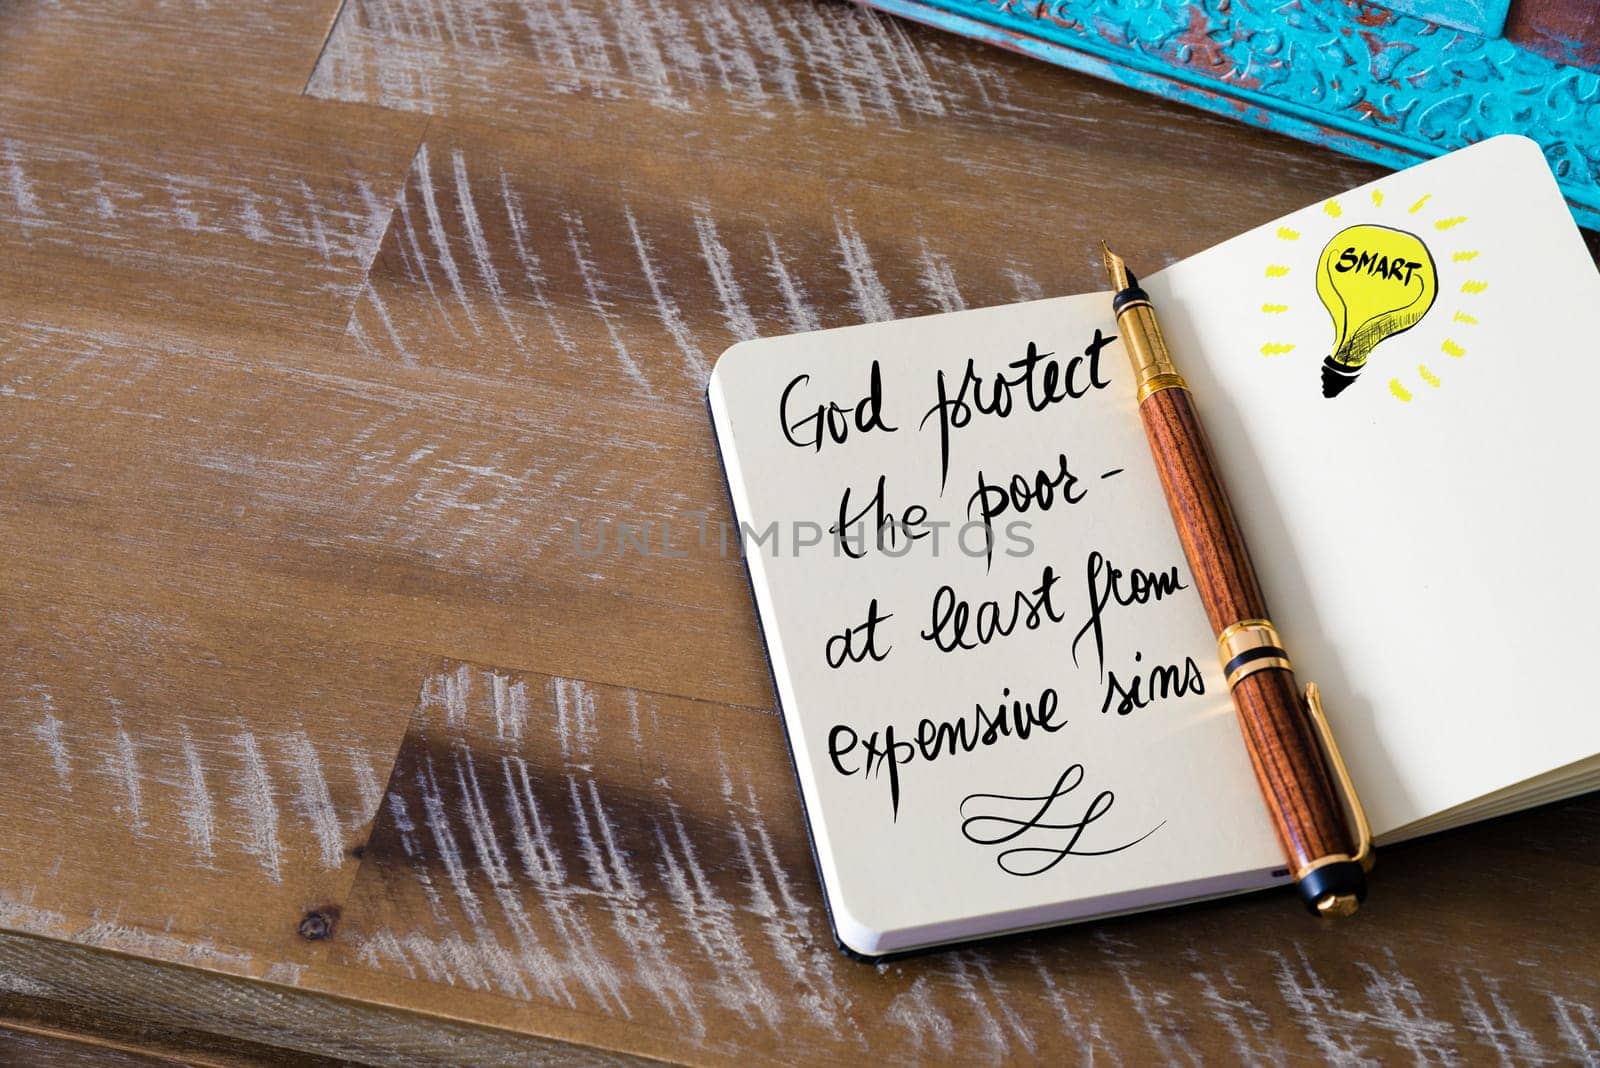 God protect
the poor -
at least from
expensive sins
SMART
UNLIMPHOTOS